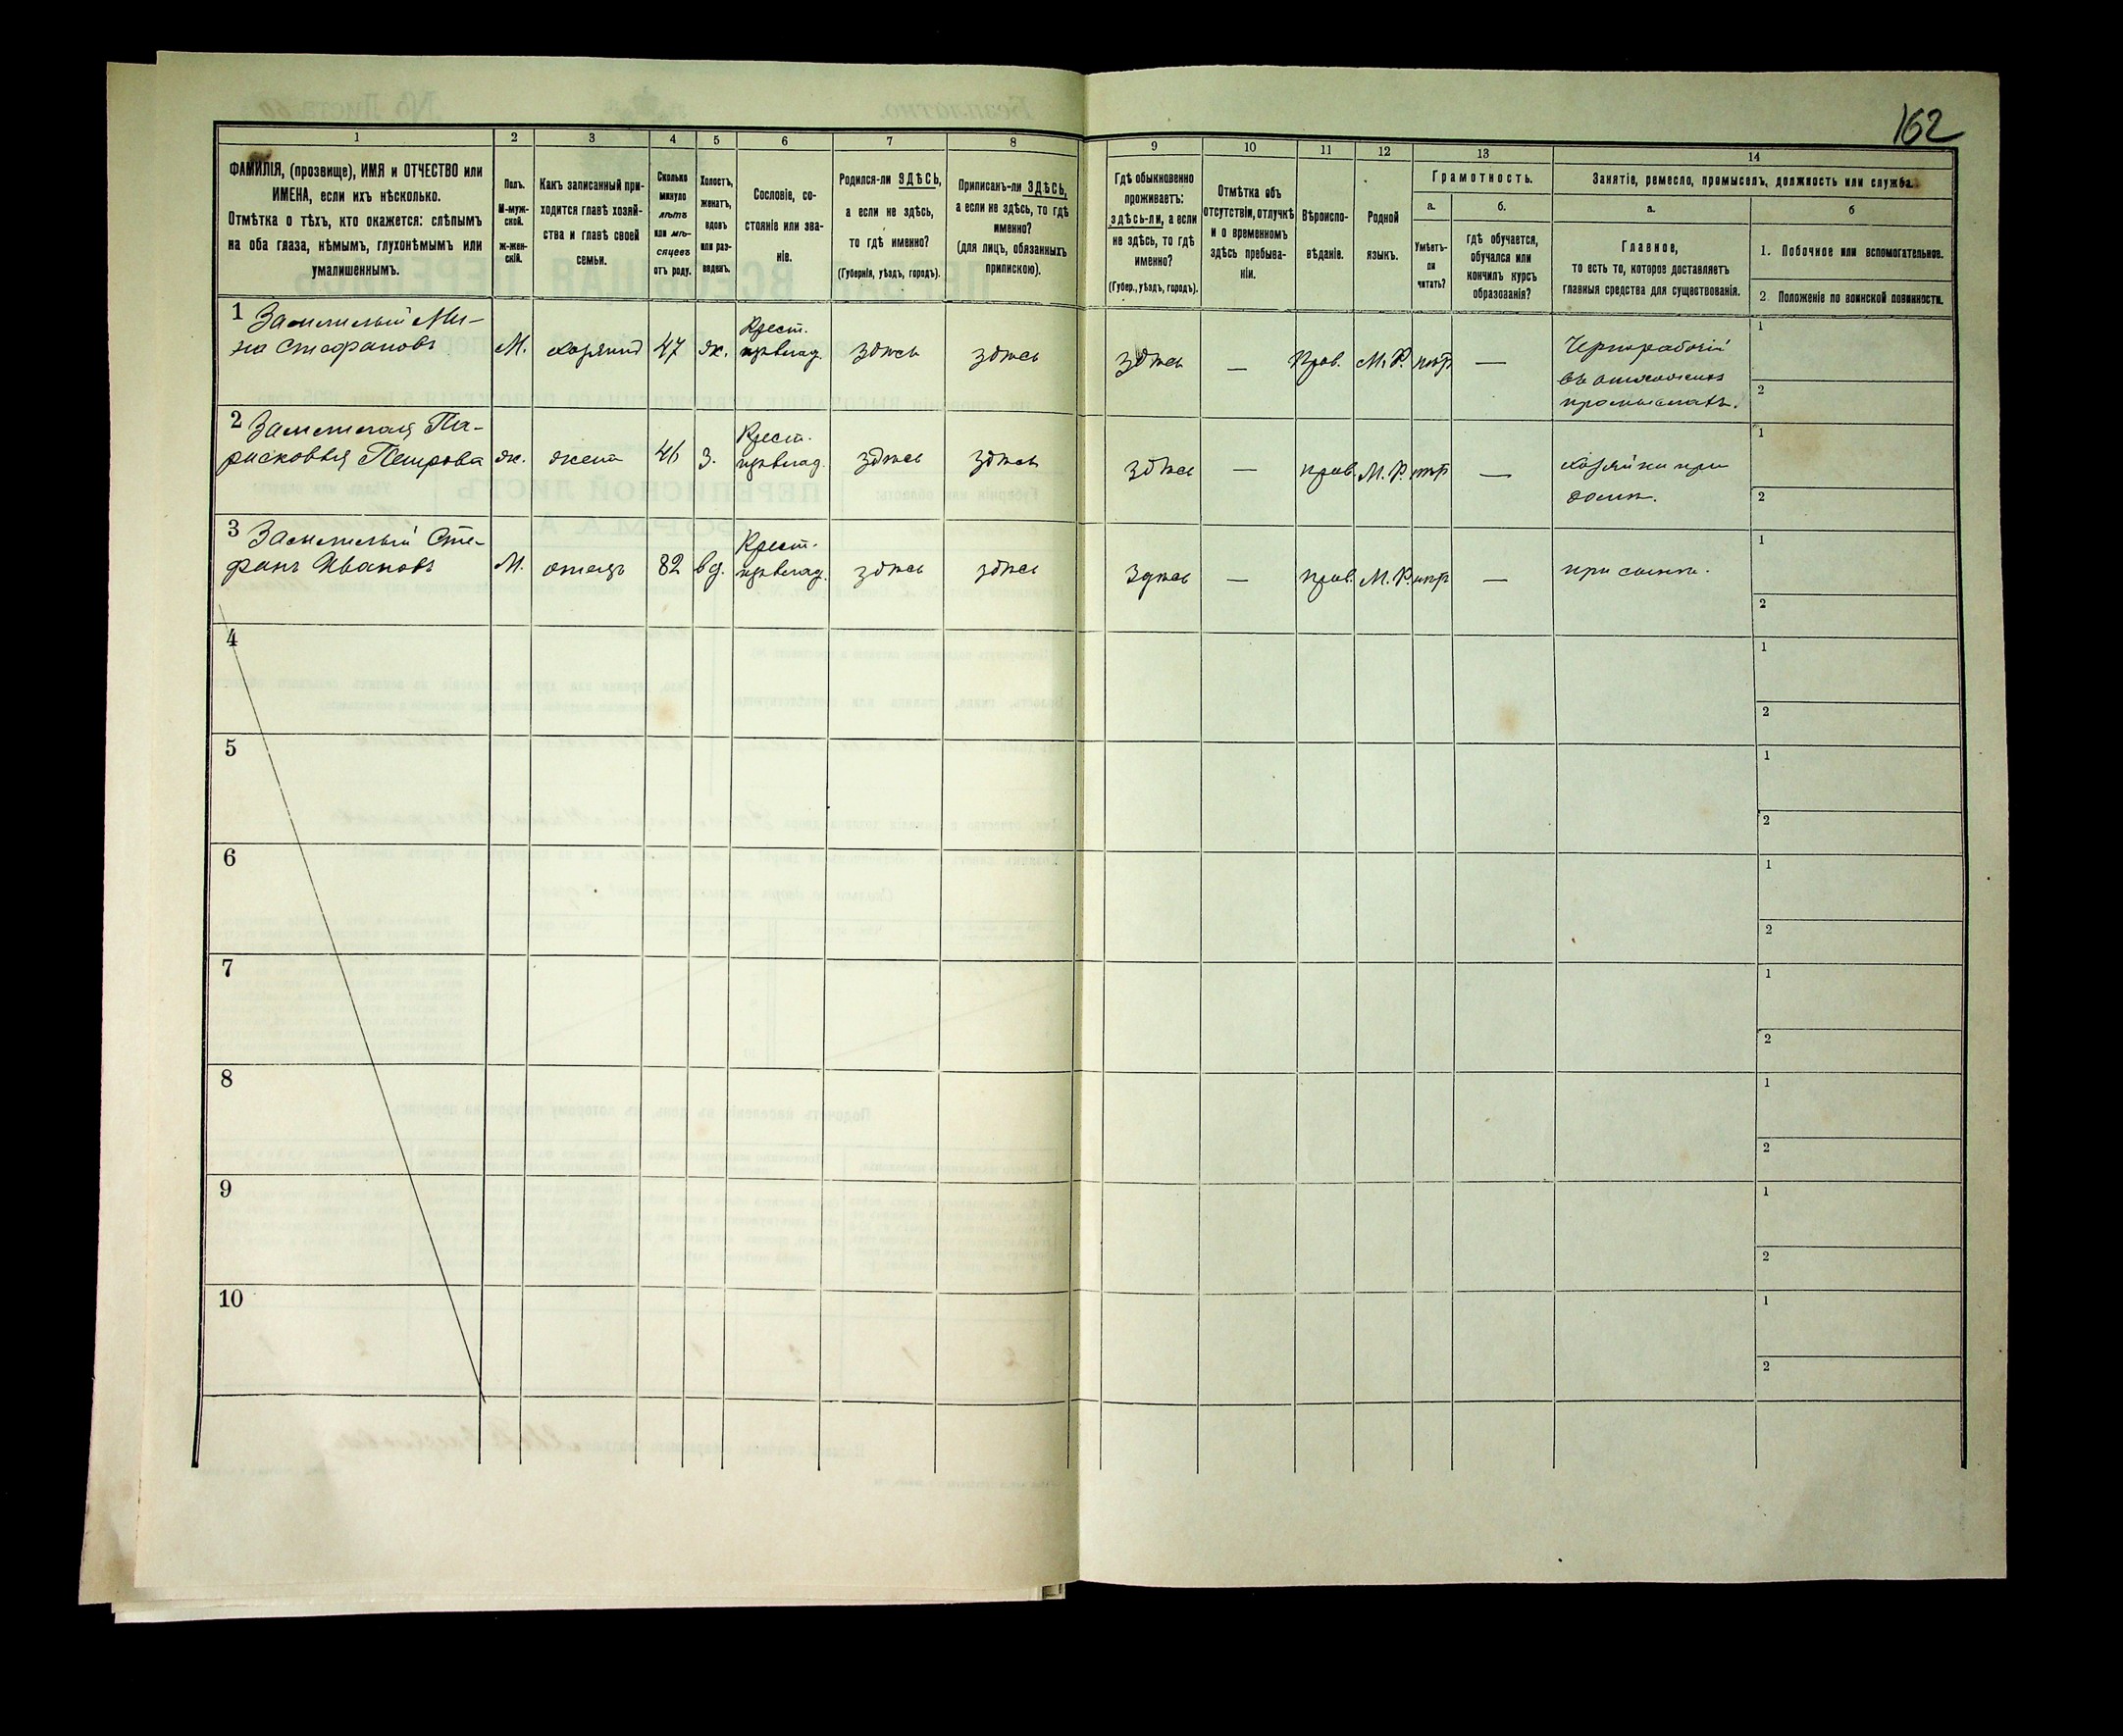 162
1 2 3 4 5 6 7 8 9 10 11 12 13 14
ФАМИЛІЯ, (прозвище), ИМЯ и ОТЧЕСТВО или
ИМЕНА, если ихъ нѣсколько.
Отмѣтка о тѣхъ, кто окажется: слѣпымъ
на оба глаза, нѣмымъ, глухонѣмымъ или
умалишеннымъ.
Полъ.
М-муж-
ской.
Ж-жен-
скій.
Какъ записанный при-
ходится главѣ хозяй-
ства и главѣ своей
семьи.
Сколько
минуло
лѣтъ
или мѣ-
сяцевъ
отъ роду.
Холостъ,
женатъ,
вдовъ
или раз-
веденъ.
Сословіе, со-
стояніе или зва-
ніе.
Родился-ли ЗДѢСЬ,
а если не здѣсь,
то гдѣ именно?
(Губернія, уѣздъ, городъ).
Приписанъ-ли ЗДѢСЬ,
а если не здѣсь, то гдѣ
именно?
(для лицъ, обязанныхъ
припискою).
Гдѣ обыкновенно
проживаетъ:
здѣсь-ли, а если
не здѣсь, то гдѣ
именно?
(Губер., уѣздъ, городъ).
Отмѣтка объ
отсутствіи, отлучкѣ
и о временномъ
здѣсь пребыва-
ніи.
Вѣроиспо-
вѣданіе.
Родной
языкъ.
Грамотность.
а.
Умѣетъ-
ли
читать?
б.
гдѣ обучается,
обучался или
кончилъ курсъ
образованія?
Занятіе, ремесло, промыселъ, должность или служба.
а.
Главное,
то есть то, которое доставляетъ
главныя средства для существованія.
б
1. Побочное или вспомогательное.
2. Положеніе по воинской повинности.
1
на Стефановъ
М. 47 ж.
Крест.
здѣсь здѣсь здѣсь — Прав. М. Р. нѣтъ —
Чернорабочій
промыслахъ.
1
2
2
Па-
расковья Петрова
ж. жена 46 з.
Крест.
здѣсь здѣсь здѣсь — прав. М. Р. нѣтъ —
хозяйка при
домѣ.
1
2
3
Сте-
фанъ Ивановъ
М. отецъ 82 вд.
Крест.
здѣсь здѣсь здѣсь — прав. М. Р. нѣтъ —
при сынѣ.
1
2
4
1
2
5
1
2
6
1
2
7
1
2
8
1
2
9
1
2
10
1
2